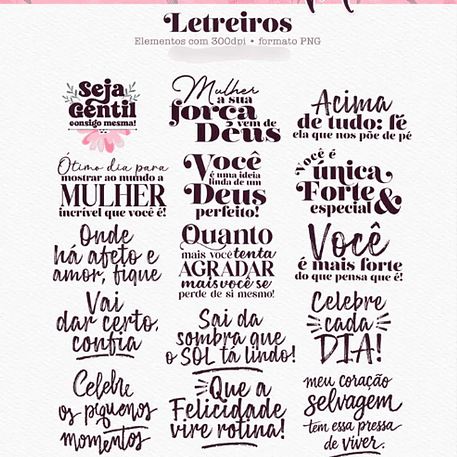 Letreiros
Elementos com 300dpi • formato PNG
Seja
Gentil
consigo mesma!
Mulher
a sua
força
vem de
Deus
Acima
de tudo: fé
ela que nos põe de pé
Ótimo dia para
mostrar ao mundo a
MULHER
incrível que você é!
Você
é uma ideia
linda de um
Deus
perfeito!
Você é
única
Forte &
especial
Onde
há afeto e
amor, fique
Quanto
mais você tenta
AGRADAR
mais você se
perde de si mesmo!
Você
é mais forte
do que pensa que é!
Vai
dar certo,
confia
Sai da
sombra que
o SOL tá lindo!
Celebre
cada
DIA!
Celebre
os pequenos
momentos
Que a
Felicidade
vire rotina!
meu coração
selvagem
tem essa pressa
de viver.